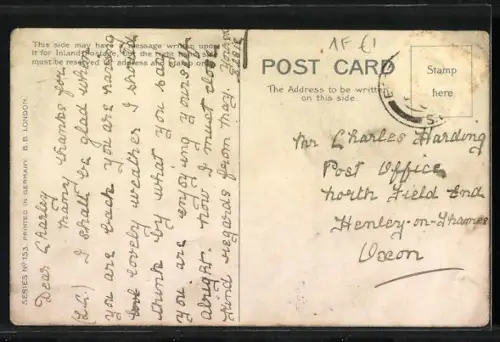 This side may have a message written upon
it for Inland Postage, but the right hand side
must be reserved for address and stamp only.
SERIES Nº 153. PRINTED IN GERMANY. B. B. LONDON.
Dear Charley
many thanks for
(L.L.) I shall be glad when
you are back you are having
lovely weather I should
think by what you said
you are enjoying yourself
alright. now I must close
Kind regards from may.
1F £1
POST CARD
The Address to be written
on this side.
Stamp
here
Mr Charles Harding
Post Office
north Field End
Henley-on-Thames
Oxon